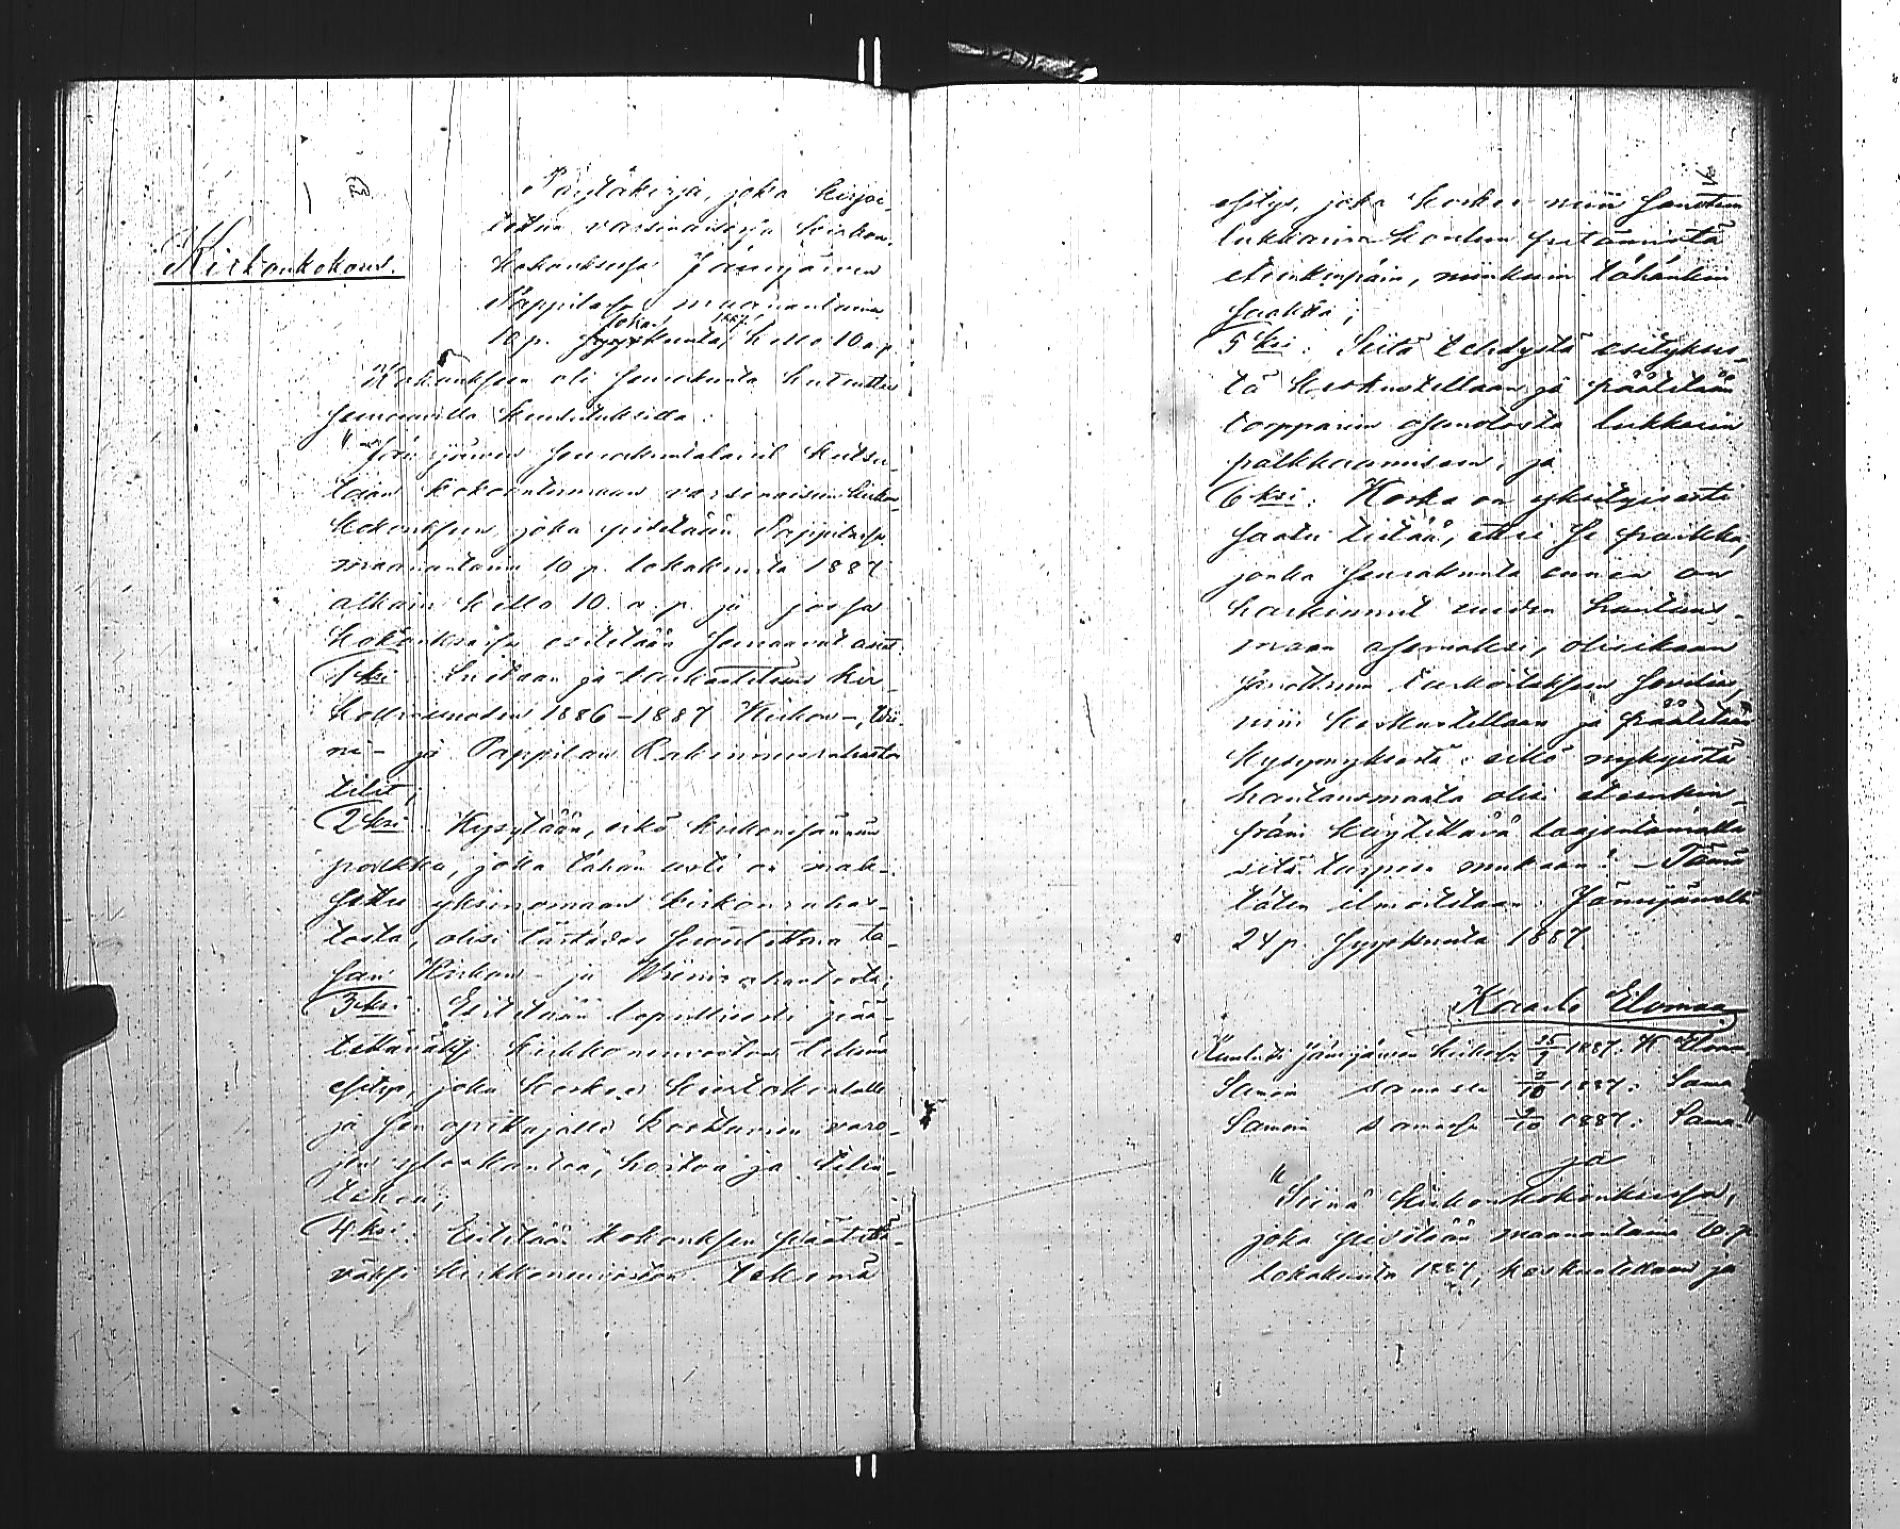 Kirkonkokous.
Pöytäkirja, joka kirjoi-
tettiin varsinaisessa kirkon-
kokouksessa Jämijärven
Pappilassa maanantaina
10 p. loka/kuuta 1887 kello 10 a.p.
Kokoukseen oli seurakunta kutsuttu
seuraavilla kuulutuksilla:
"Jämijärven seurakuntalaiset kutsu-
taan kokoontumaan varsinaiseen kirkon-
kokoukseen, joka pidetään Pappilassa
maanantaina 10 p. lokakuuta 1887
alkain kello 10 a. p. ja jossa
kokouksessa esitetään seuraavat asiat:
1 ksi. Luetaan ja tarkastetaan kir-
kollisvuoden 1886-1887 Kirkon-, Wii-
ni- ja Pappilan Rakennusrahaston
tilit;
2 ksi. Kysytään, eikö kirkonisännän
palkka, joka tähän asti on mak-
settu yksinomaan kirkonrahas-
tosta, olisi tästedes suoritettava ta-
san Kirkon- ja Wiinirahastoista;
3 ksi. Esitetään lopullisesti pää-
tettäväksi kirkkoneuvoston tekemä
esitys, joka koskee kiertokoululle
ja sen opettajalle koottavien varo-
jen ylöskantoa, hoitoa ja tilin-
tekoa;
4 ksi. Esitetään kokouksen päätettä-
väksi kirkkoneuvoston tekemä
esitys, joka koskee niin sanotun
lukkarin koulun pitämistä
eteenkinpäin, niinkuin tähänkin
saakka;
5 ksi. Siitä tehdystä esitykses-
tä keskustellaan ja päätetään
torpparien osanotosta lukkarin
palkkaamiseen; ja
6 ksi. Koska on yksityisesti
saatu tietää, ettei se paikka,
jonka seurakunta ennen on
harkinnut uuden hautaus-
maan asemaksi, olisikaan
sanottuun tarkoitukseen sovelias,
niin keskustellaan ja päätetään
kysymyksestä: eikö nykyistä
hautausmaata olisi eteenkin-
päin käytettävä laajentamalla
sitä tarpeen mukaan? - Tämä
täten ilmoitetaan. Jämijärvellä
24 p. syyskuuta 1887
Kaarlo Elomaa
Kuulutti Jämijärven kirkossa 25/9 1887. K Elomaa.
Samoin samassa 2/10 1887: Sama
Samoin samassa 9/10 1887: Sama"
ja
"Siinä kirkonkokouksessa,
joka pidetään maanantaina 10 p.
lokakuuta 1887, keskustellaan ja